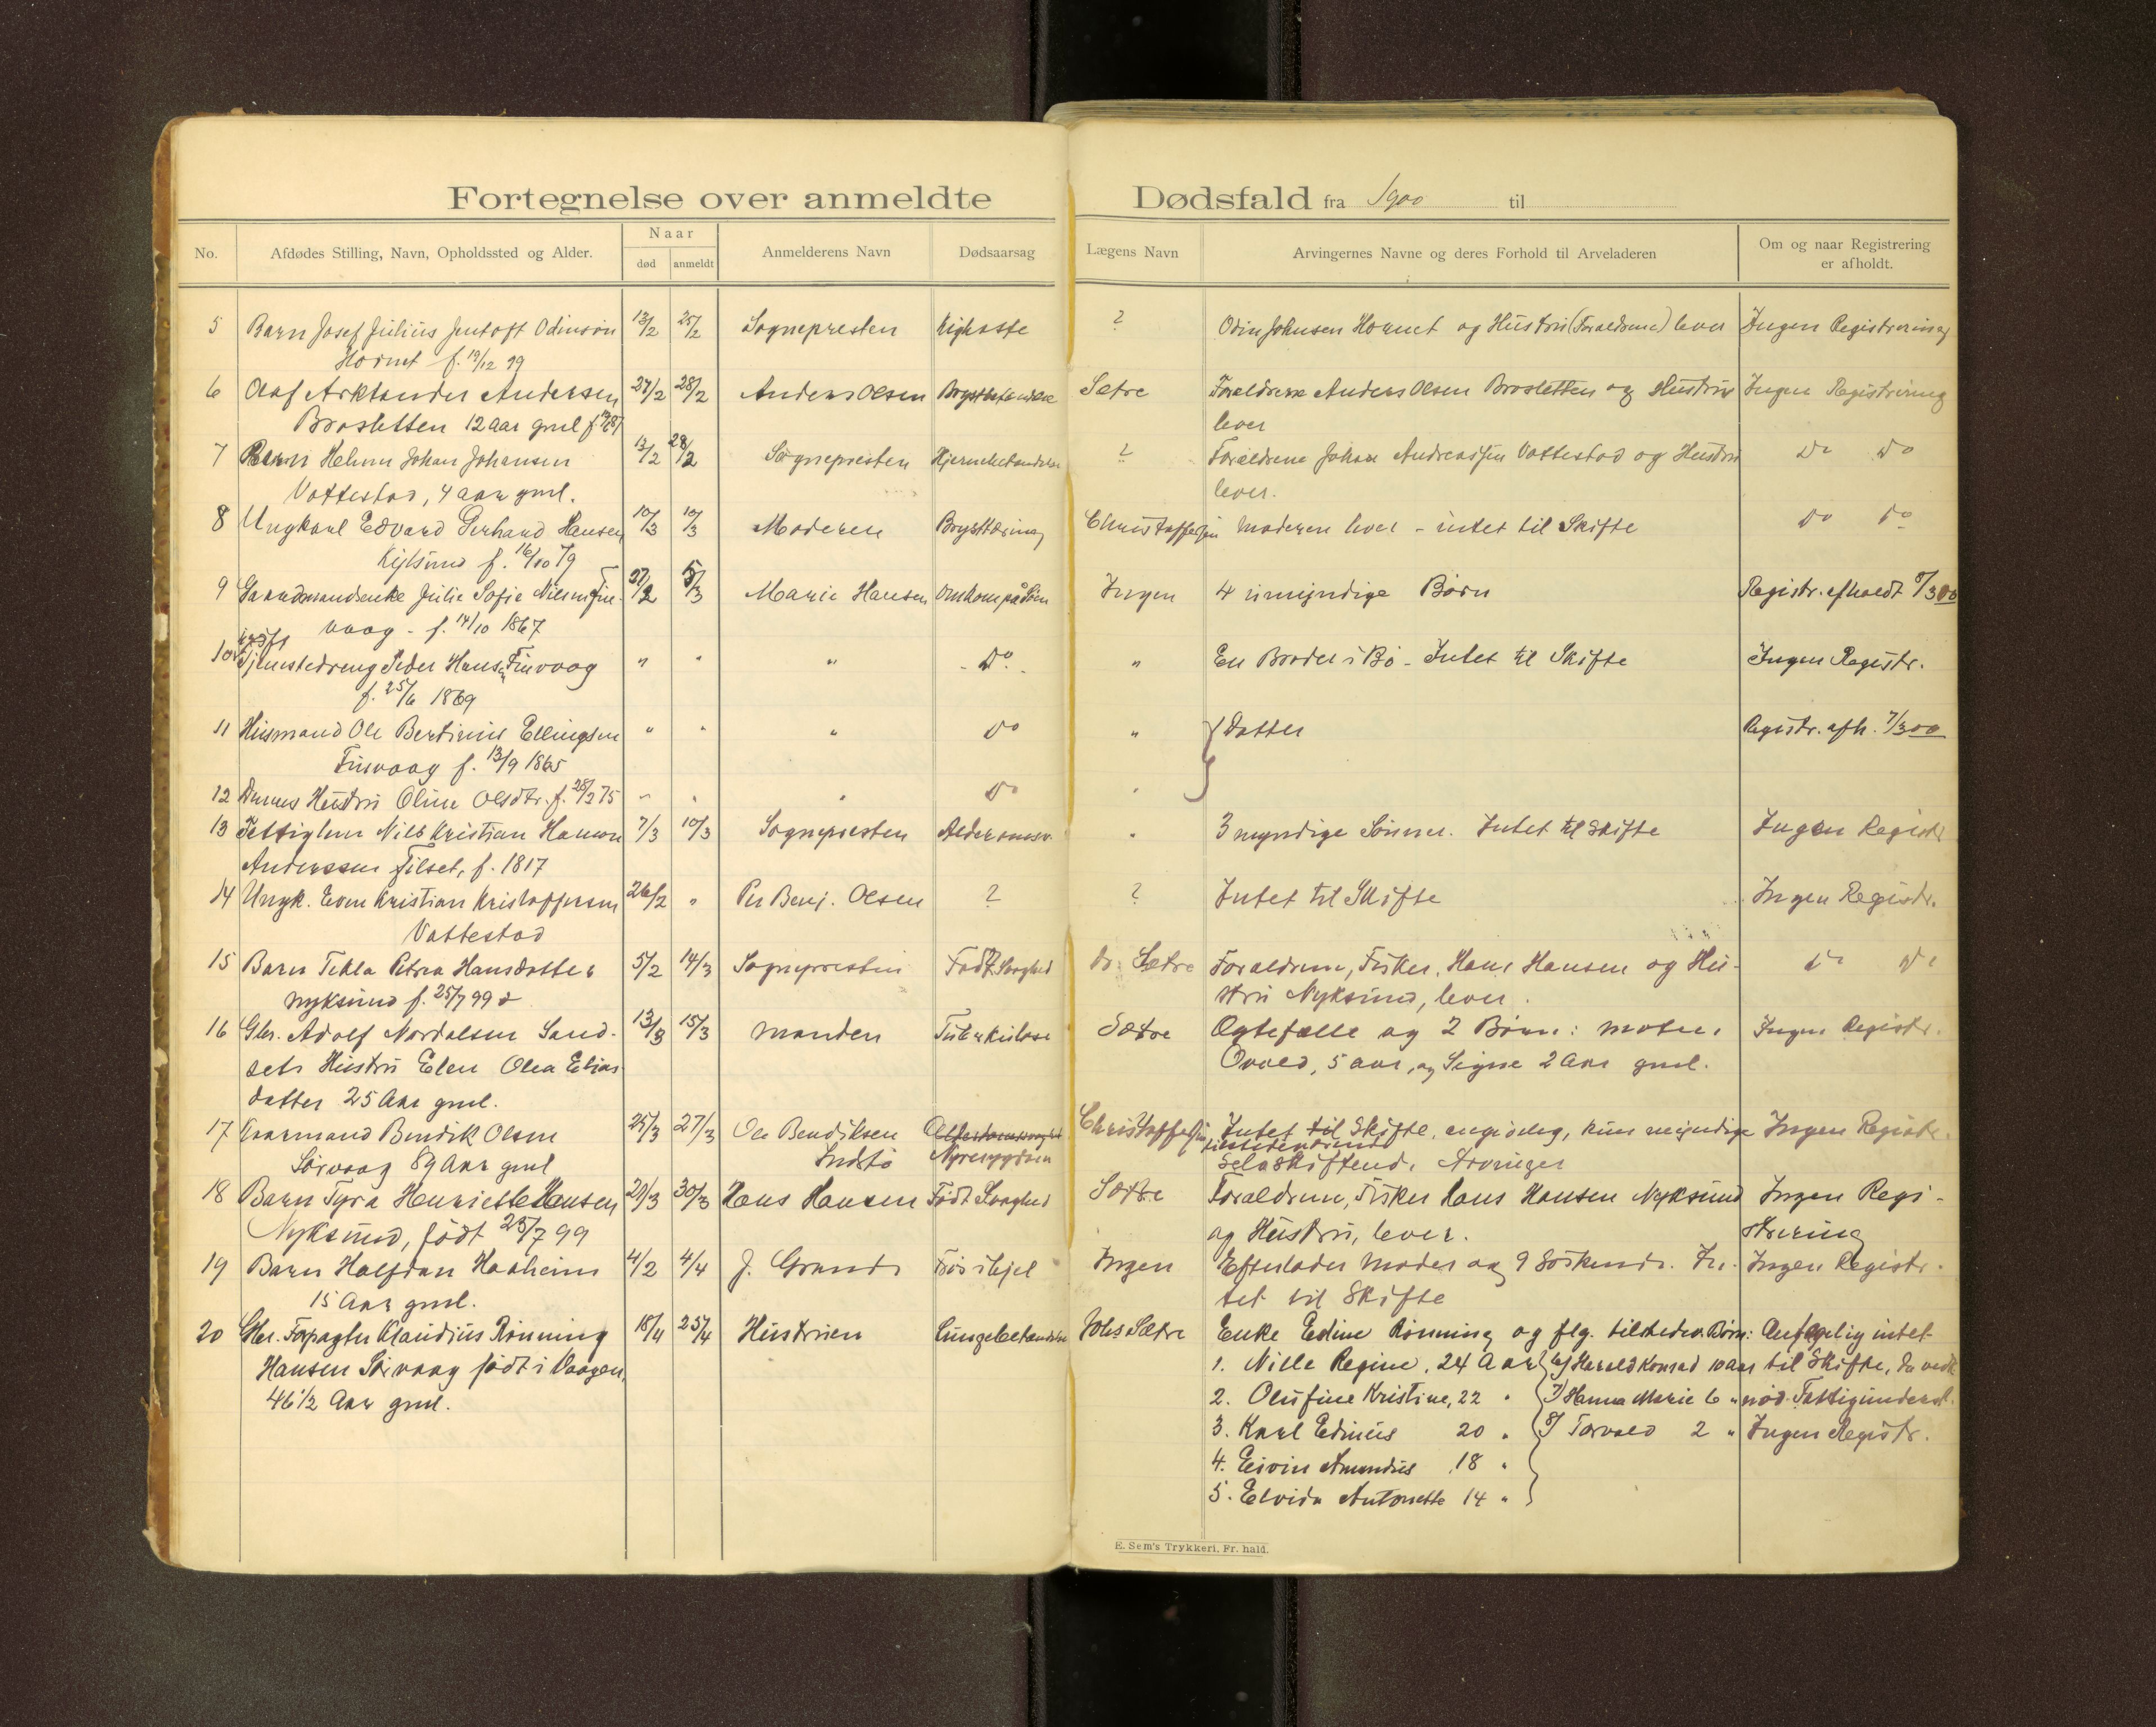 Fortegnelse over anmeldte Dødsfald fra 1900 til
No. Afdødes Stilling, Navn, Opholdssted og Alder. Naar død anmeldt Anmelderens Navn Dødsaarsag Lægens Navn Arvingernes Navne og deres Forhold til Arveladeren Om og naar Registrering er afholdt.
5 Barn Josef Julius Jentoft Odinson 13/2 25/2 Sognepresten Kighoste ? Odin Johnsen Hornet og Hustru (Forældrene) lever Ingen Registrering
Hornet f. 19/12 99
6 Olaf Arktander Andersen 27/2 28/2 Anders Olsen Brystbetændelse Sætre Forældrene Anders Olsen Brosletten og Hustru Ingen Registrering
Brosletten 12 Aar gml lever
7 Barn Helmer Johan Johansen 13/2 28/2 Sognepresten Hjernebetændelse ? Forældrene Johan Andreassen Vottestad og Hustru Do Do
Vottestad, 4 aar gml. lever.
8 Ungkarl Edvard Gerhard Hansen 10/3 10/3 Moderen Brysttæring Christoffersen Moderen lever - intet til Skifte Do Do
f. 16/10 79
9 Gaardmandsenke Julie Sofie Nilsen Fin- 27/2 5/3 Marie Hansen Omkom på Søen Ingen 4 umyndige Børn Registr. afholdt 7/3 00
vaag - f. 14/10 1867
10 Tjenestedreng Peder Hansen Finvaag " " " Do. " En Broder i Bø - Intet til Skifte Ingen Registr.
f. 25/6 1869
11 Husmand Ole Bertinus Ellingsen " " " Do " 1 Datter Registr. afh. 7/3 00
Finvaag f. 13/9 1865
12 Dennes Hustru Oline Olsdtr. f. 28/2 75 " " " Do "
13 Fattiglem Nils Kristian Hanson 7/3 10/3 Sognepresten Alderdomssv. " 3 myndige Sønner. Intet til Skifte Ingen Registr
Anderssen Tilset, f. 1817
14 Ungk. Even Kristian Kristoffersen 26/2 " Per Benj. Olsen ? ? Intet til Skifte Ingen Registr.
Vottestad
15 Barn Tekla Petrea Hansdatter 5/2 14/3 Sognepresten Født Svaghed dr. Sætre Forældrene, Fisker Hans Hansen og Hu- Do Do
Nyksund f. 25/7 99 stru Nyksund, lever.
16 Gbr. Adolf Nordalsen Sand- 13/3 15/3 Manden Tuberkulose Sætre Ægtefælle og 2 Børn: Ingen Registr.
sets Hustru Elen Olea Elias 5 aar, og Signe 2 Aar gml.
datter 25 Aar gml.
17 Gaarmand Bendik Olsen 25/3 27/3 Ole Bendiksen Alderdomssvaghed Christoffersen Intet til Skifte, angivelig, kun myndige Ingen Registr.
Sørvaag 89 Aar gml Indstø Nyresygdom tilstedeværende
selvskiftende Arvinger
18 Barn Tyra Henriette Hansen 29/3 30/3 Hans Hansen Født Svaghed Sætre Forældrene, Fisker Hans Hansen Nyksund Ingen Regi-
Nyksund, født 25/7 99 og Hustru, lever. strering
19 Barn Halfdan Haaheim 4/2 4/4 J. Grands Frøs ihjel Ingen Efterlader Moder og 9 Søskende. In- Ingen Registr.
15 Aar gml. tet til Skifte
20 Gbr. Forpagter Klaudius Rønning 18/4 25/4 Hustruen Lungebetændelse Johs Sætre Enke Edine Rønning og flg. tilstedev. Børn: Angivelig intet
Hansen Sørvaag født i Vaagen, 1. Nille Regine, 24 Aar 6) Harald Konrad 10 aar til Skifte, da vedk
46 1/2 Aar gml. 2. Olufine Kristine, 22 " 7) Hanna Marie 6 " nød Fattigunderst.
3. Karl Edinius 20 " 8) Torvald 2 " Ingen Registr.
4. Eivin Amandus 18 "
5. Elvida Antonette 14 "
E. Sem's Trykkeri, Fr. hald.